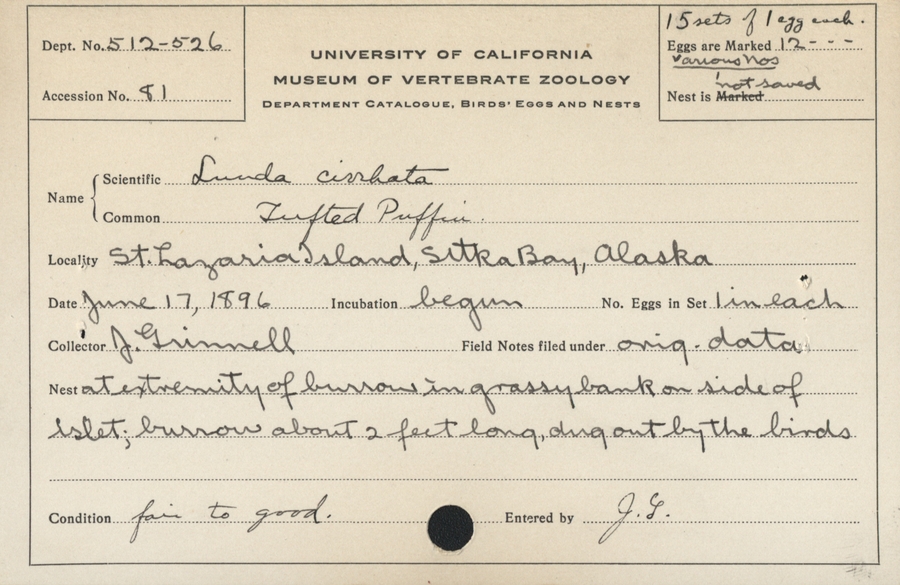 15 sets of 1 egg each.
Dept. No. 512-526
UNIVERSITY OF CALIFORNIA
MUSEUM OF VERTEBRATE ZOOLOGY
DEPARTMENT CATALOGUE, BIRDS' EGGS AND NESTS
Eggs are Marked 12- - - -
various nos
Accession No. 81
not saved
Nest is Marked
Name
Scientific Lunda cirrhata
Common Tufted Puffin.
Locality St. Lazaria Island, Sitka Bay, Alaska
Date June 17, 1896 Incubation begun No. Eggs in Set 1 in each
Collector J. Grinnell Field Notes filed under orig. data
Nest at extremity of burrow in grassy bank on side of
islet; burrow about 2 feet long, dug out by the birds
Condition fair to good. Entered by J.G.